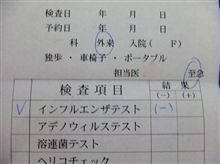 検査日 年 月 日
予約日 年 月 日
科 外来 入院( F)
独歩・車椅子・ポータブル
担当医 至急
検査項目 結果
(-) (+)
V インフルエンザテスト (-)
アデノウィルステスト
溶連菌テスト
ヘリコチェック